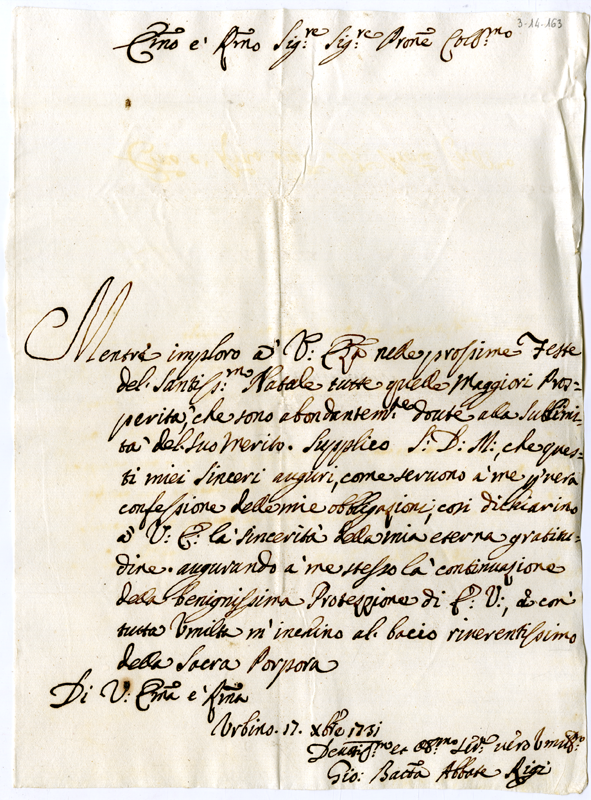 3-14-163
Emo è Rmo Sig:re Sig:re Prone Coll:mo
Mentrè imploro à V: Eza nelle prossime Feste
del Santiss:mo Natale tutte quelle Maggiori Pros=
perità, che sono abondantem:te douute alla Sublimi=
tà del Suo Merito. Supplico S: D: M:, che ques=
ti miei sinceri auguri, come seruono à me p vera
confessione delle mie obbligazioni, così dichiarino
à V: E: la sincerità della mia eterna gratitu=
dine. augurando à me stesso la continuazione
della benignissima Protezzione di E: V:, è con
tutta Vmiltà m'inchino al bacio riuerentissimo
della Sacra Porpora
Di V: Ema è Rma
Vrbino. 17. xbre 1731
Deuotiss:mo ed Obb:mo Ser: uero Vmiliss:mo
Gio: Batta Abbate Rigi